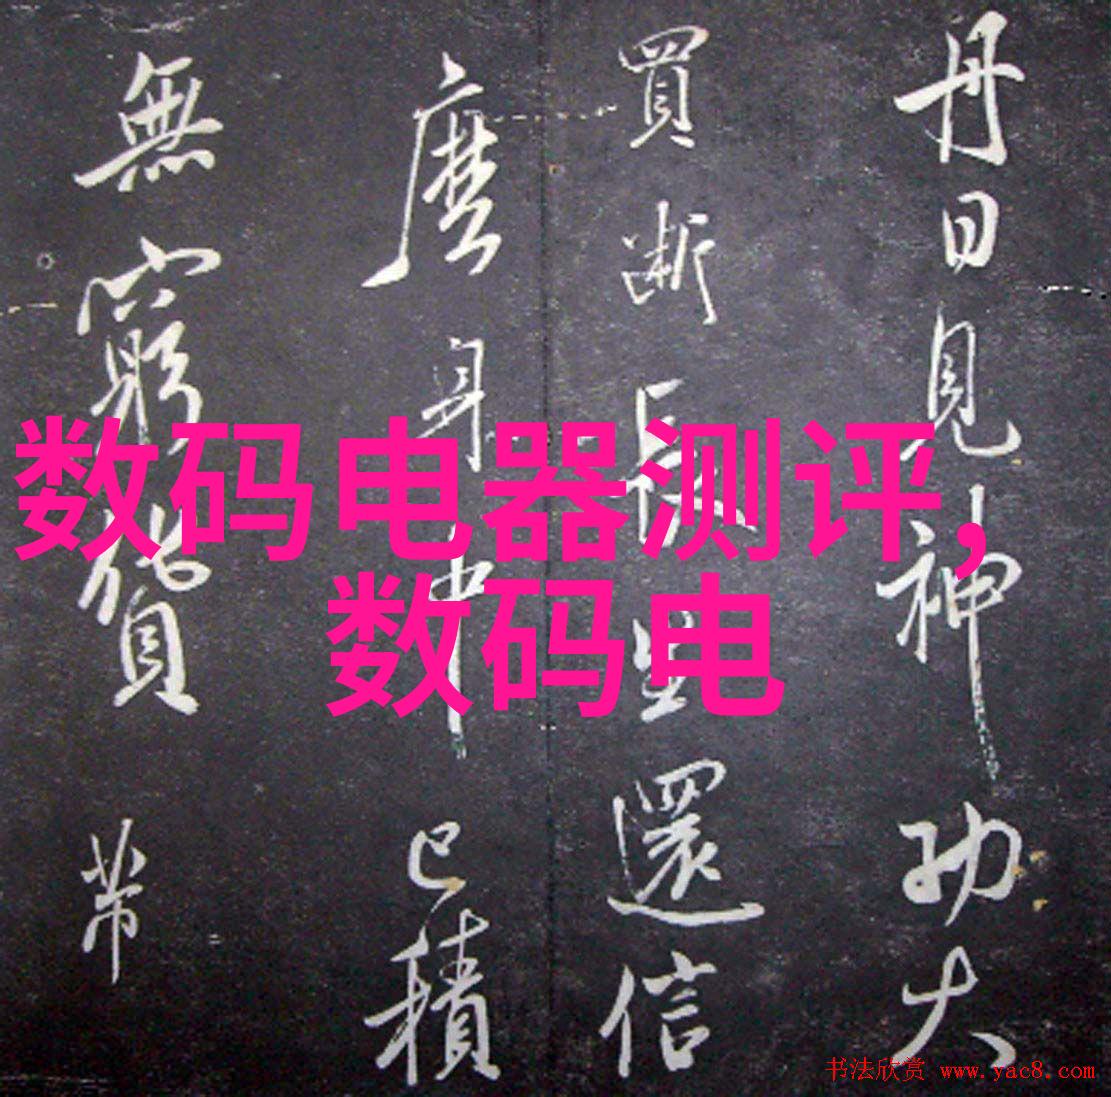 丹日見神功大
買斷長生還信
麼身中已積
無窮貨帶
数码电器测评,
数码电
书法欣赏 www.yac8.com